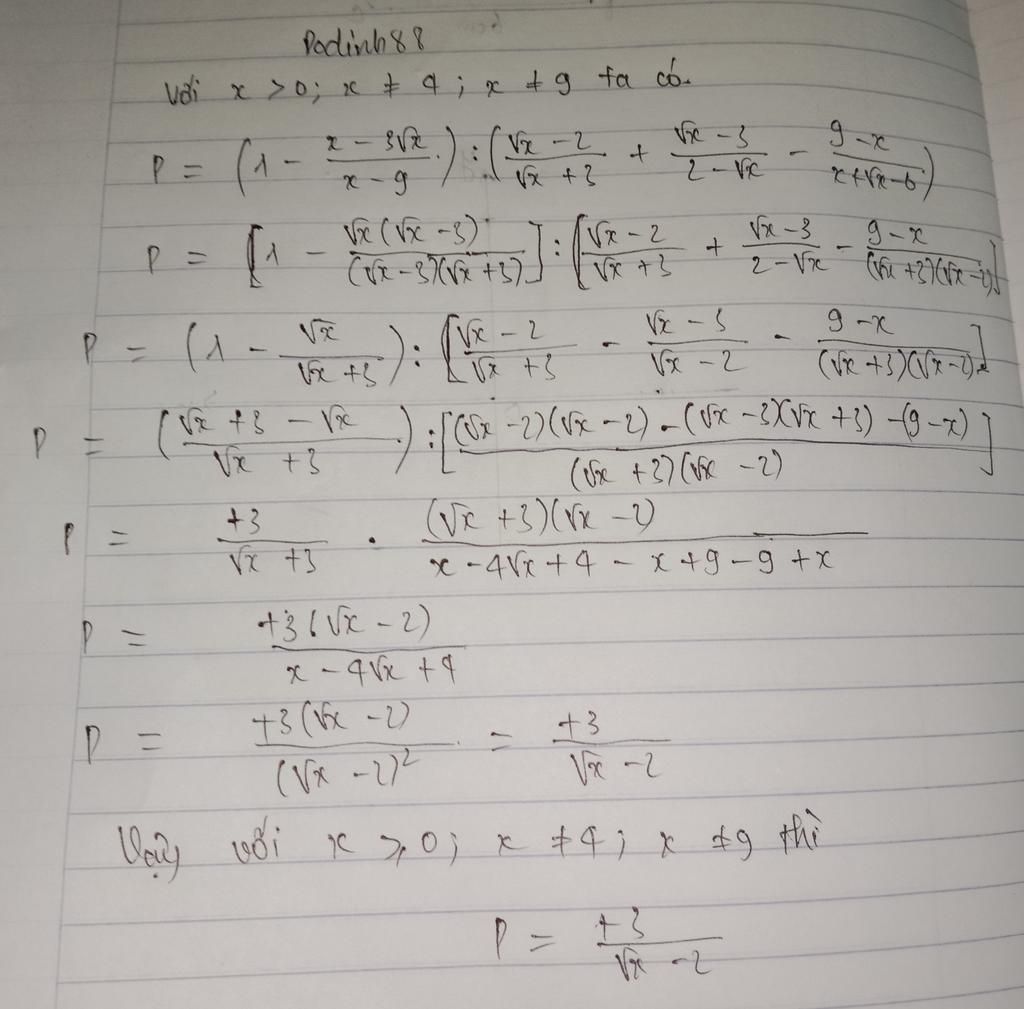 Podinh88
Với x > 0; x ≠ 4; x ≠ 9 ta có.
P = (1 - (x - 3√x)/(x - 9)) : ((√x - 2)/(√x + 3) + (√x - 3)/(2 - √x) - (9 - x)/(x + √x - 6))
P = [1 - (√x(√x - 3))/((√x - 3)(√x + 3))] : [(√x - 2)/(√x + 3) + (√x - 3)/(2 - √x) - (9 - x)/((√x + 3)(√x - 2))]
P = (1 - √x/(√x + 3)) : [(√x - 2)/(√x + 3) - (√x - 3)/(√x - 2) - (9 - x)/((√x + 3)(√x - 2))]
P = ((√x + 3 - √x)/(√x + 3)) : [((√x - 2)(√x - 2) - (√x - 3)(√x + 3) - (9 - x))/((√x + 3)(√x - 2))]
P = +3/(√x + 3) . ((√x + 3)(√x - 2))/(x - 4√x + 4 - x + 9 - 9 + x)
P = +3(√x - 2)/(x - 4√x + 4)
P = +3(√x - 2)/(√x - 2)² = +3/(√x - 2)
Vậy với x ≥ 0; x ≠ 4; x ≠ 9 thì
P = +3/(√x - 2)